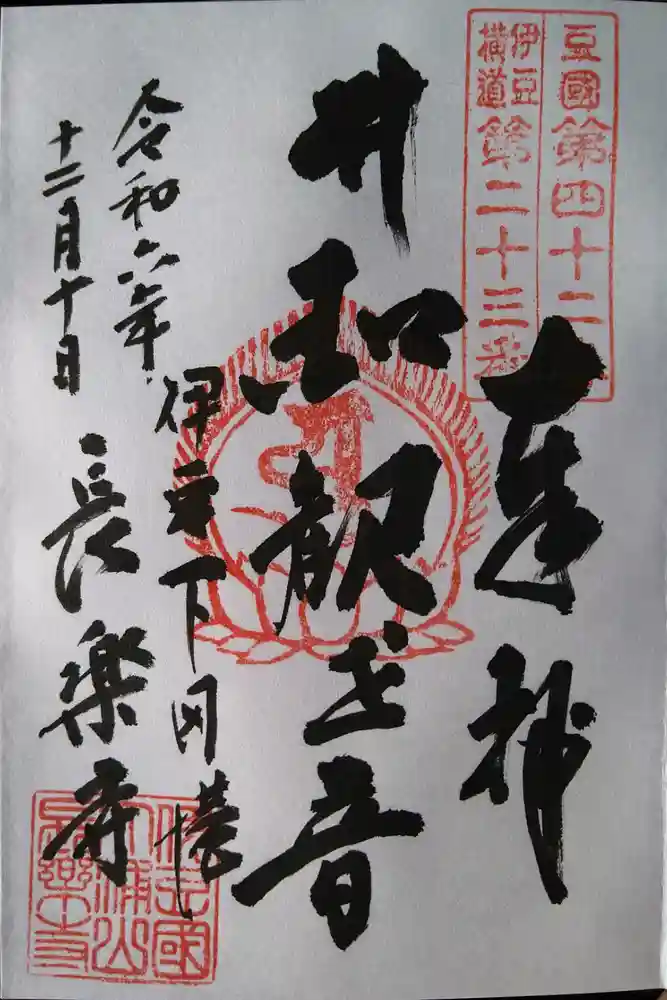 豆國第四十二
伊豆
横道
第二十三番
奉拝
観世音
伊豆下田港
令和六年
十二月十日
長樂寺
伊豆國
大浦山
長樂寺